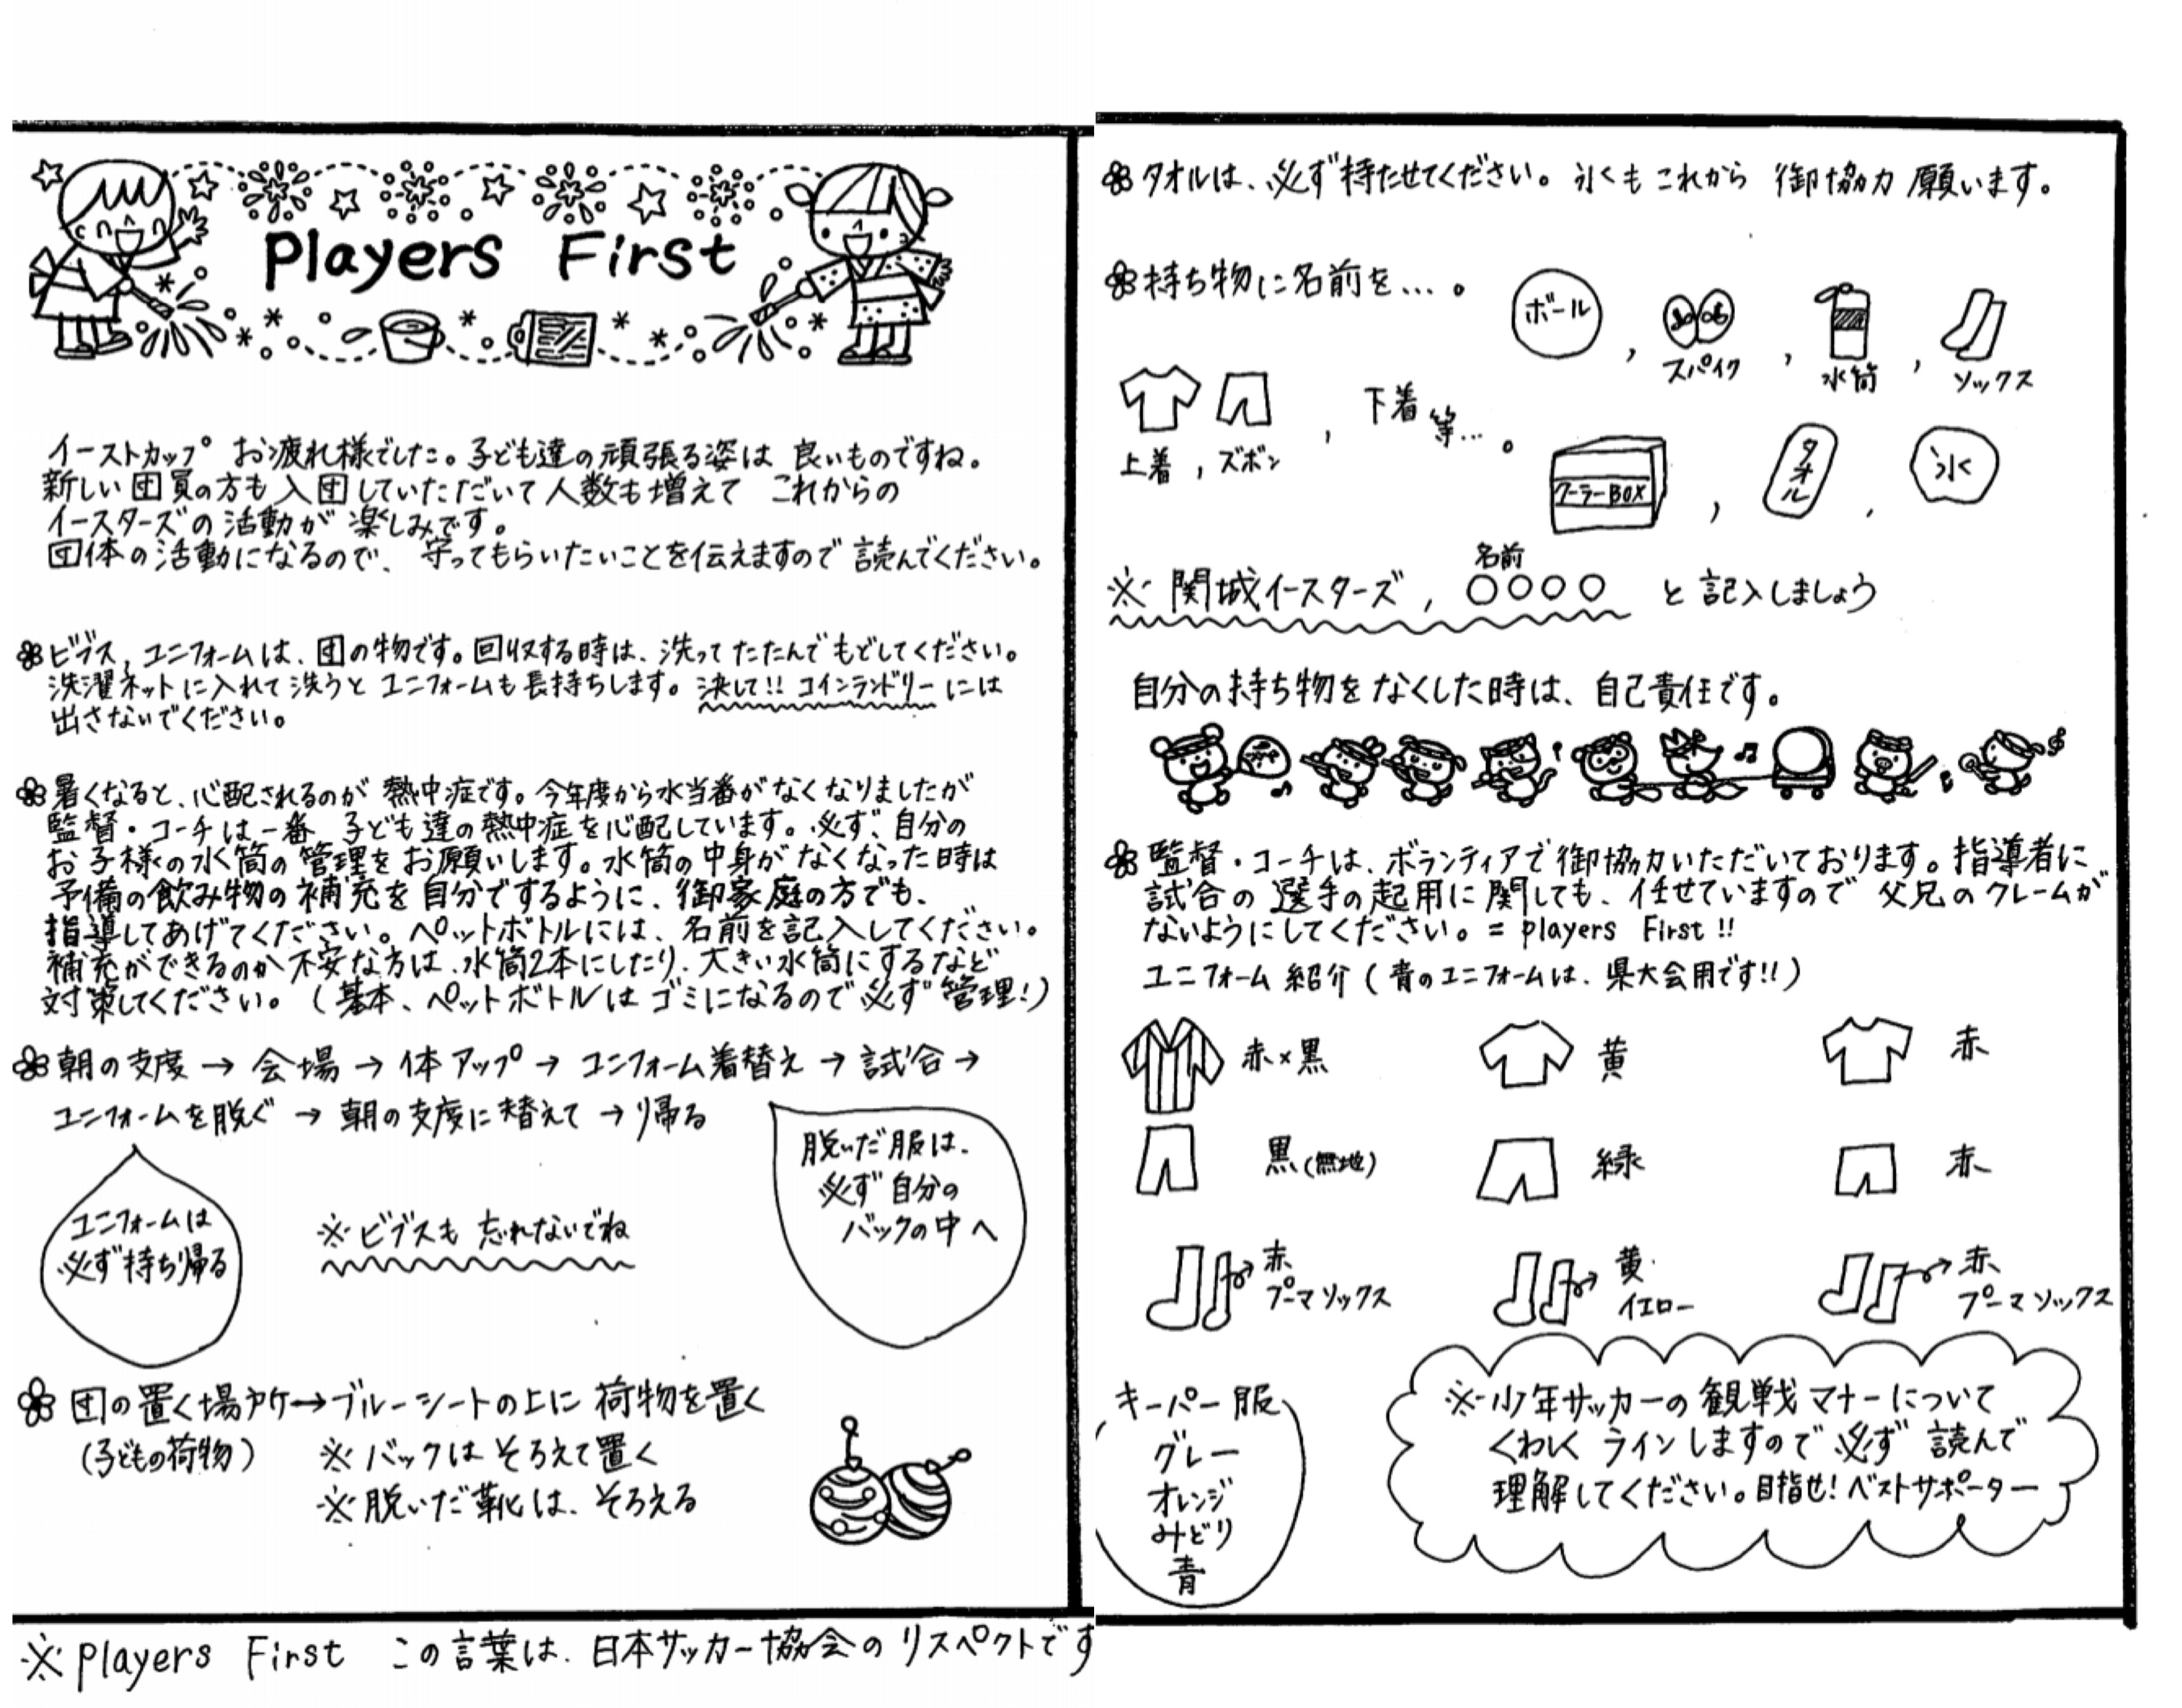 Players First
イーストカップ お疲れ様でした。子ども達の頑張る姿は 良いものですね。
新しい団員の方も 入団していただいて人数も増えて これからの
イースターズの活動が 楽しみです。
団体の活動になるので、守ってもらいたいことを伝えますので 読んでください。
ビブス, ユニフォームは、団の物です。回収する時は、洗って たたんで もどしてください。
洗濯ネットに入れて洗うと ユニフォームも長持ちします。決して!! コインランドリーには
出さないでください。
暑くなると、心配されるのが 熱中症です。今年度から水当番がなくなりましたが
監督・コーチは一番 子ども達の熱中症を心配しています。必ず、自分の
お子様の水筒の管理をお願いします。水筒の中身がなくなった時は
予備の飲み物の補充を自分でするように、御家庭の方でも、
指導してあげてください。ペットボトルには、名前を記入してください。
補充ができるのか不安な方は、水筒2本にしたり、大きい水筒にするなど
対策してください。(基本、ペットボトルはゴミになるので必ず管理!)
朝の支度 → 会場 → 体アップ → ユニフォーム着替え → 試合 →
ユニフォームを脱ぐ → 朝の支度に替えて → 帰る
ユニフォームは
必ず持ち帰る
※ビブスも 忘れないでね
脱いだ服は、
必ず自分の
バックの中へ
団の置く場所→ブルーシートの上に 荷物を置く
(子どもの荷物)
※バックは そろえて置く
※脱いだ靴は、そろえる
※players First この言葉は、日本サッカー協会の リスペクトです
タオルは、必ず持たせてください。氷もこれから 御協力願います。
持ち物に名前を…。
ボール
,
スパイク
,
水筒
,
ソックス
上着 , ズボン
, 下着 等…。
クーラーBOX
,
タオル
,
氷
名前
※関城イースターズ, 〇〇〇〇 と記入しましょう
自分の持ち物をなくした時は、自己責任です。
監督・コーチは、ボランティアで御協力いただいております。指導者に
試合の選手の起用に関しても、任せていますので 父兄のクレームが
ないようにしてください。= players First !!
ユニフォーム紹介 (青のユニフォームは、県大会用です!!)
赤×黒
黄
赤
黒(無地)
緑
赤
赤
プーマソックス
黄
イエロー
赤
プーマソックス
キーパー服
グレー
オレンジ
みどり
青
※少年サッカーの観戦マナーについて
くわしく ラインしますので必ず 読んで
理解してください。目指せ!ベストサポーター